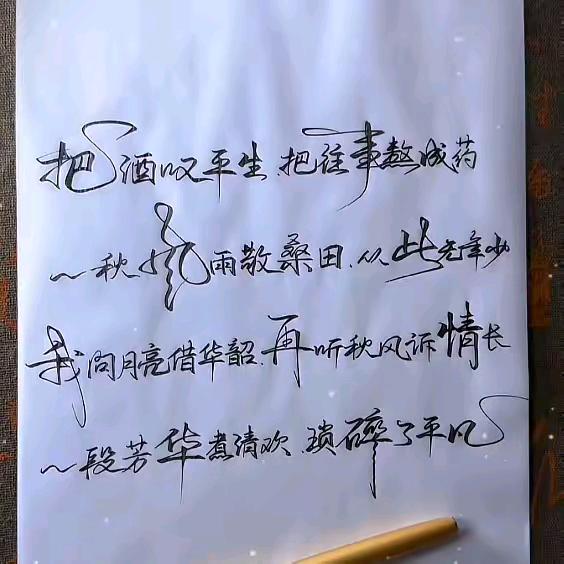 把酒叹平生、把往事熬成药
一秋风雨散桑田、从此老年少
我向月亮借华韶、再听秋风诉情长
一段芳华煮清欢、琐碎了平凡